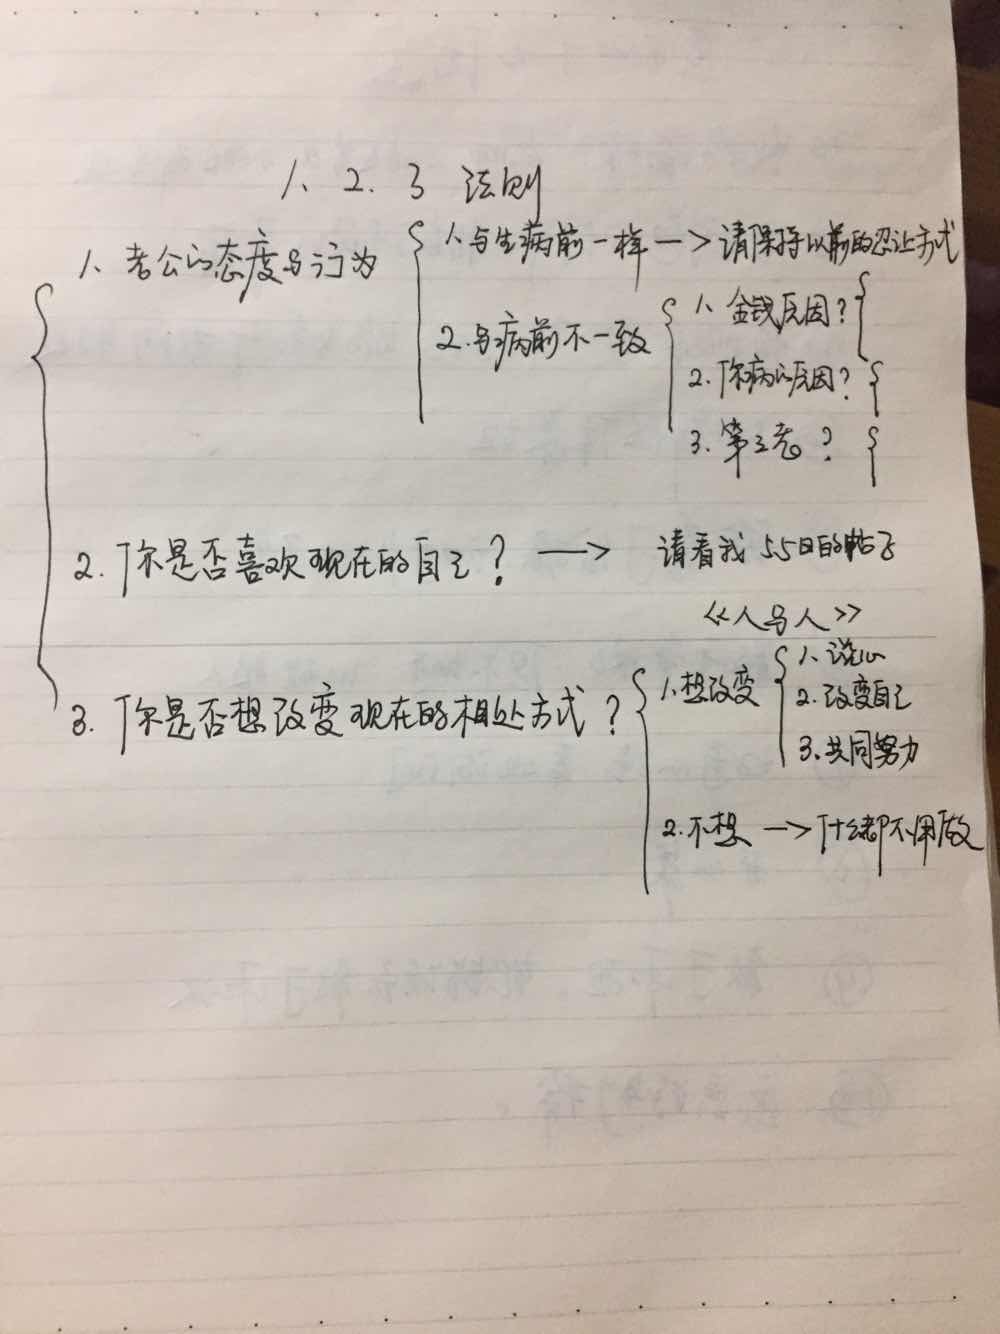 1、2. 3 法则
1、老公的态度与行为
1、与生病前一样 —> 请保持以前的忍让方式
2.与病前不一致
1、金钱原因?
2.你病的原因?
3.第三者?
2.你是否喜欢现在的自己? —> 请看我 5.5日的帖子
《人与人》
3.你是否想改变现在的相处方式?
1.想改变
1、说心
2.改变自己
3.共同努力
2.不想 —> 什么都不用做